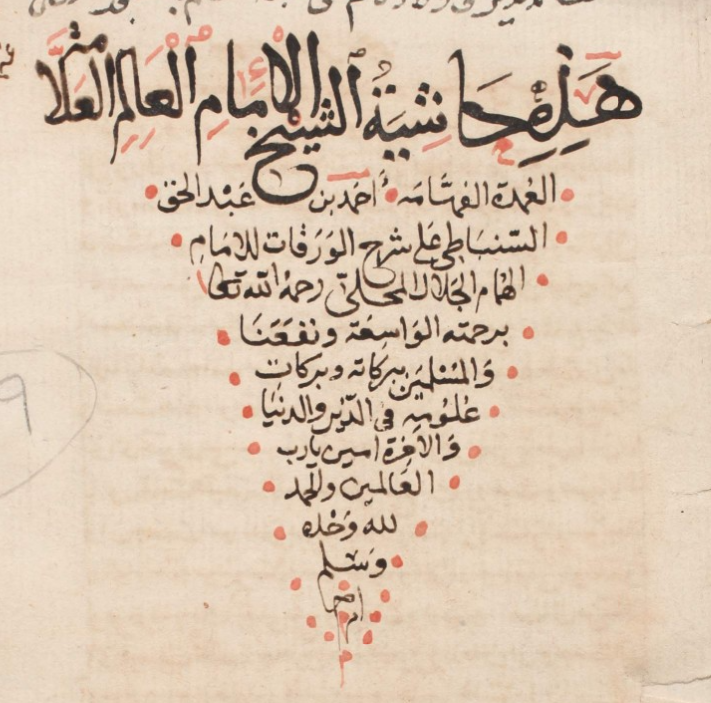 هَذِهِ حَاشِيَةُ الشيخ الإِمَامِ العَالِمِ العَلَّامة
العُمدَة الفهَّامَه أحمَد بن عَبْد الحَق
السّنبَاطي عَلي شَرح الوَرَقات للامَامِ
الهُمام الجَلال المحَلي رحمهُ الله تعَا
برحمته الوَاسِعَة ونفَعَنَا
وَالمُسْلمين ببركاته وبركات
عُلُومِه في الدّين والدنيَا
وَالآخرة امين يارب
العَالمين والحمد
لله وَحْده
وَسلم